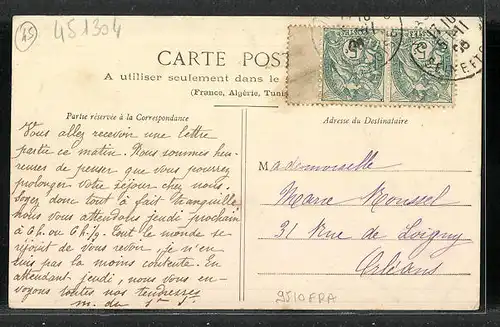 45
451304
CARTE POST
A utiliser seulement dans le
(France, Algérie, Tuni
Partie réservée à la Correspondance
Vous allez recevoir une lettre
partie ce matin. Nous sommes heu-
reuses de penser que vous pourrez
prolonger votre séjour chez nous.
Soyez donc tout à fait tranquille
Nous vous attendons jeudi prochain
à 6 h. ou 6 h. ½. Tout le monde se
réjouit de vous revoir, je n'en
suis pas la moins contente. En
attendant jeudi, nous vous en-
voyons toutes nos tendresses
Adresse du Destinataire
Mademoiselle
Marie Roussel
31 Rue de Loigny
Orléans
9510 FRA